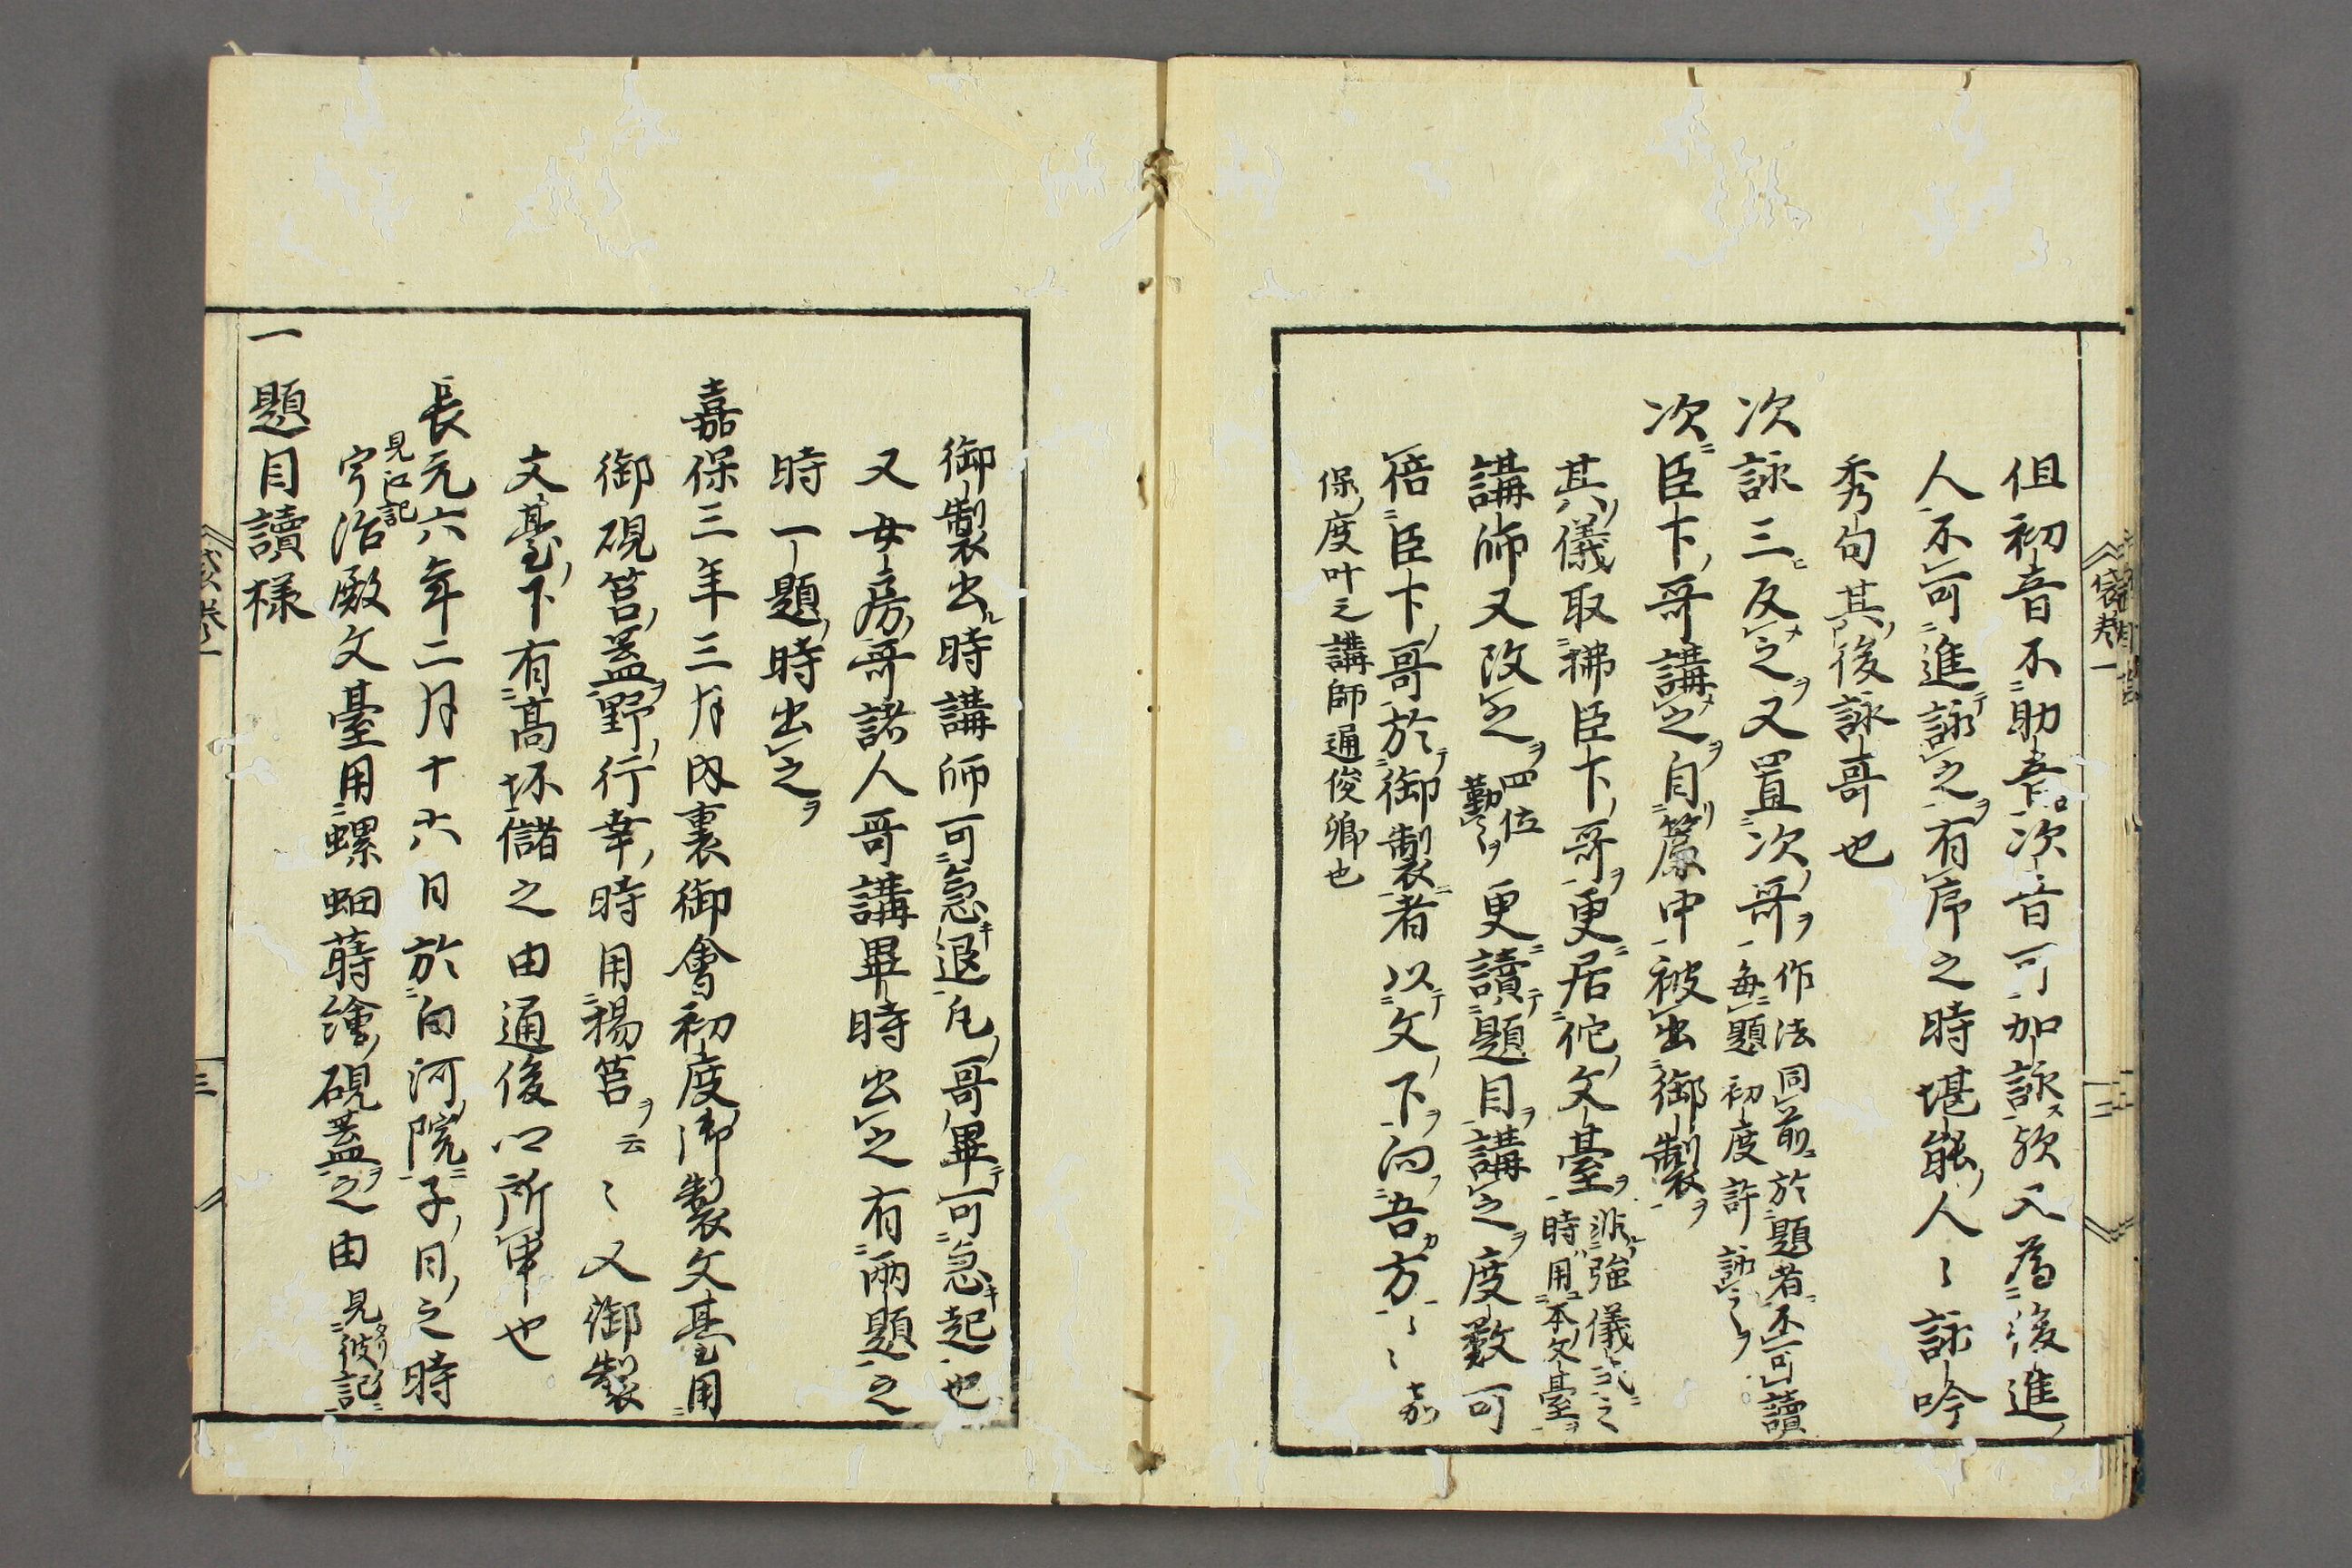 但初音不助音次音可加詠歟又為後進
人不可進詠之有序之時堪能人〻詠吟
秀句其後詠哥也
次詠三反之又置次哥 作法同前於題者不可讀
毎題初度許詠之
次臣下哥講之自簾中被出御製
其儀取拂臣下哥更居他文臺 非強儀式之
時用本文臺
講師又改之 四位
勤之 更讀題目講之度数可
倍臣下哥於御製者以文下向吾方〻〻嘉
保度叶之講師通俊卿也
御製出時講師可急退凡哥畢可急起也
又女房哥諸人哥講畢時出之有兩題之
時一題時出之
嘉保三年三月内裏御會初度御製文臺用
御硯筥蓋野行幸時用楊筥云〻又御製
文臺下有高坏儲之由通俊卿所申也
見江記
長元六年二月十六日於白河院子日之時
宇治殿文臺用螺鈿蒔繪硯蓋之由 見彼記
一題目讀様
袋巻一
二
三